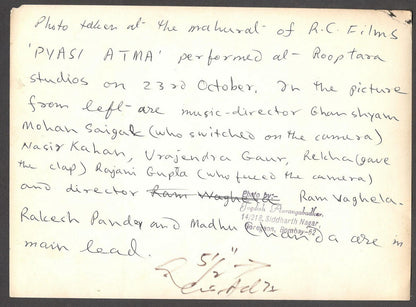 Photo taken at the mahurat of R.C. Films
'PYASI ATMA' performed at Rooptara
studios on 23rd October. In the picture
from left are music-director Ghanshyam
Mohan Saigal (who switched on the camera)
Nasir Kahan, Vrajendra Gaur, Rekha (gave
the clap) Rajani Gupta (who faced the camera)
and director Ram Waghela Ram Vaghela.
Photo by:-
14/213, Siddharth Nagar
Goregaon, Bombay-62
Rakesh Pandey and Madhu Chanda are in
main lead.
5½"